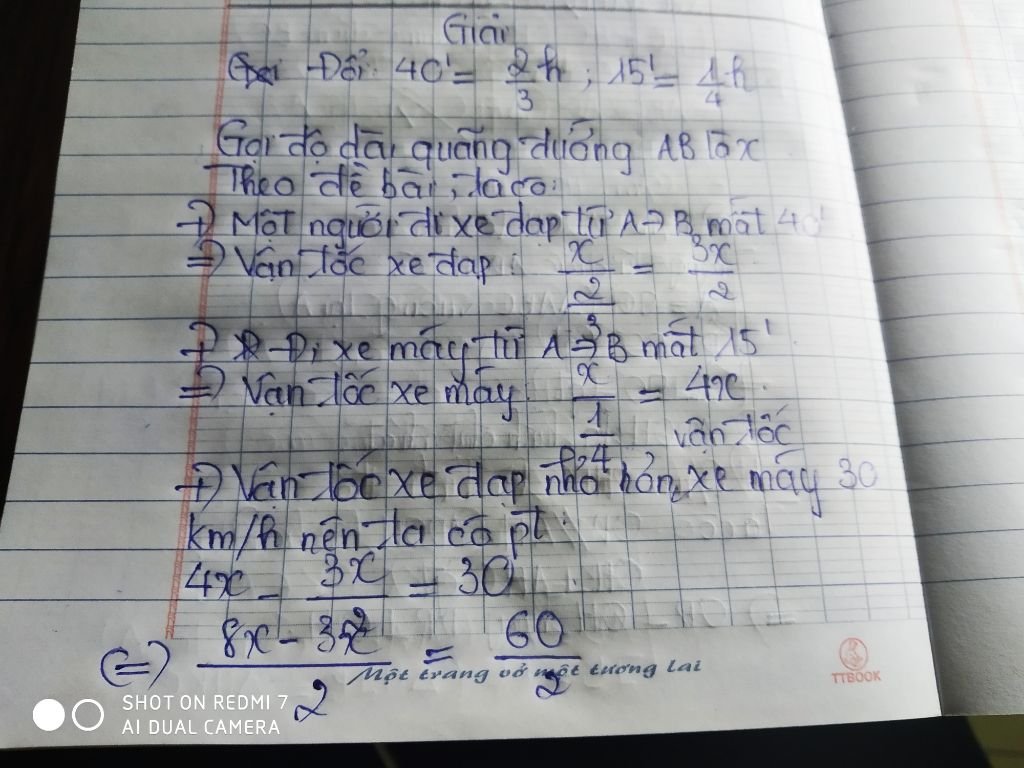 Giải
-Đổi: 40' = 2/3 h ; 15' = 1/4 h
Gọi độ dài quãng đường AB là x
Theo đề bài, ta có:
+) Một người đi xe đạp từ A → B mất 40'
=> Vận tốc xe đạp: x/(2/3) = 3x/2
+) Đi xe máy từ A → B mất 15'
=> Vận tốc xe máy x/(1/4) = 4x
vận tốc
+) Vận tốc xe đạp nhỏ hơn xe máy 30
km/h nên ta có pt:
4x - 3x/2 = 30
(=) (8x - 3x)/2 = 60/2
Một trang vở một tương lai
TTBOOK
SHOT ON REDMI 7
AI DUAL CAMERA